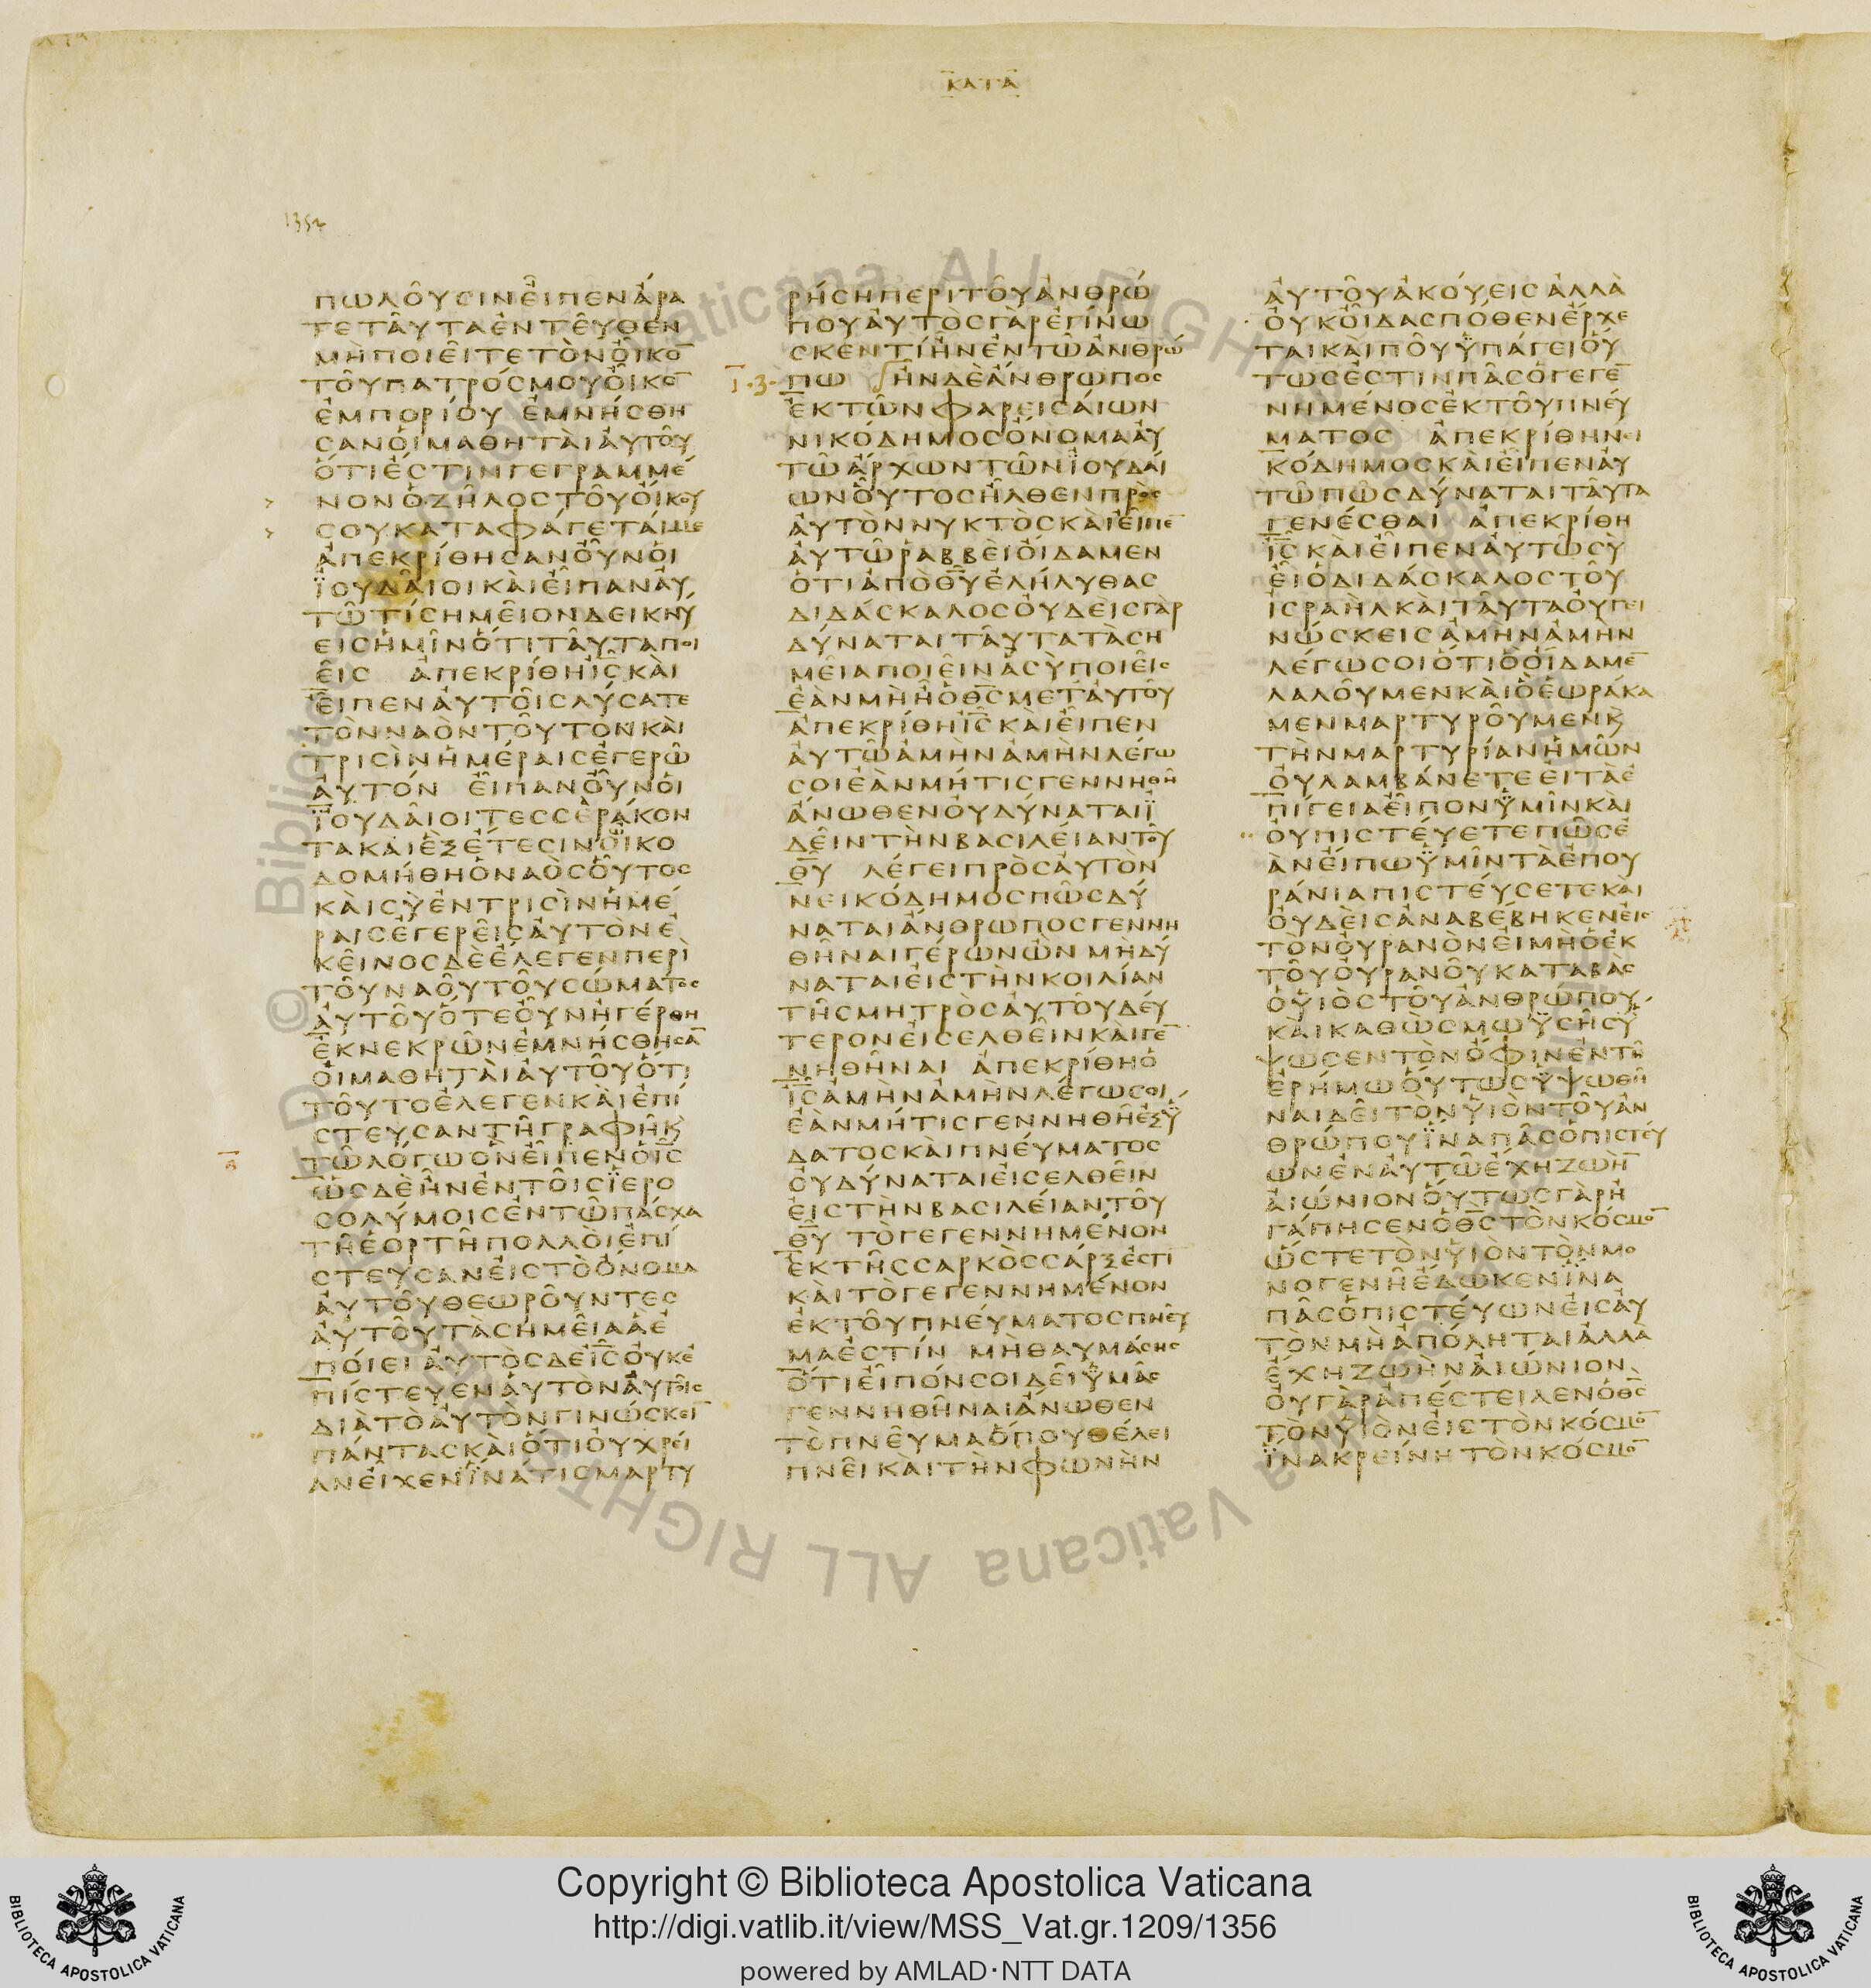 ΚΑΤΑ
1352
ΠΩΛΟΥΣΙΝΕΙΠΕΝΑΡΑ
ΤΕΤΑΥΤΑΕΝΤΕΥΘΕΝ
ΜΗΠΟΙΕΙΤΕΤΟΝΟΙΚΟ̅
ΤΟΥΠΑΤΡΟΣΜΟΥΟΙΚΟ̅
ΕΜΠΟΡΙΟΥ ΕΜΝΗΣΘΗ
ΣΑΝΟΙΜΑΘΗΤΑΙΑΥΤΟΥ
ΟΤΙΕΣΤΙΝΓΕΓΡΑΜΜΕ
ΝΟΝΟΖΗΛΟΣΤΟΥΟΙΚΟΥ
ΣΟΥΚΑΤΑΦΑΓΕΤΑΙΜΕ
ΑΠΕΚΡΙΘΗΣΑΝΟΥΝΟΙ
ΪΟΥΔΑΙΟΙΚΑΙΕΙΠΑΝΑΥ
ΤΩΤΙΣΗΜΕΙΟΝΔΕΙΚΝΥ
ΕΙΣΗΜΙΝΟΤΙΤΑΥΤΑΠΟΙ
ΕΙΣ ΑΠΕΚΡΙΘΗΙ̅Σ̅ΚΑΙ
ΕΙΠΕΝΑΥΤΟΙΣΛΥΣΑΤΕ
ΤΟΝΝΑΟΝΤΟΥΤΟΝΚΑΙ
ΤΡΙΣΙΝΗΜΕΡΑΙΣΕΓΕΡΩ
ΑΥΤΟΝ ΕΙΠΑΝΟΥΝΟΙ
ΪΟΥΔΑΙΟΙΤΕΣΣΕΡΑΚΟΝ
ΤΑΚΑΙΕΞΕΤΕΣΙΝΟΙΚΟ
ΔΟΜΗΘΗΟΝΑΟΣΟΥΤΟΣ
ΚΑΙΣΥΕΝΤΡΙΣΙΝΗΜΕ
ΡΑΙΣΕΓΕΡΕΙΣΑΥΤΟΝΕ
ΚΕΙΝΟΣΔΕΕΛΕΓΕΝΠΕΡΙ
ΤΟΥΝΑΟΥΤΟΥΣΩΜΑΤΟΣ
ΑΥΤΟΥΟΤΕΟΥΝΗΓΕΡΘΗ
ΕΚΝΕΚΡΩΝΕΜΝΗΣΘΗΣΑ̅
ΟΙΜΑΘΗΤΑΙΑΥΤΟΥΟΤΙ
ΤΟΥΤΟΕΛΕΓΕΝΚΑΙΕΠΙ
ΣΤΕΥΣΑΝΤΗΓΡΑΦΗΚ̀
ΤΩΛΟΓΩΟΝΕΙΠΕΝΟΙ̅Σ̅
ΩΣΔΕΗΝΕΝΤΟΙΣΪΕΡΟ
ΣΟΛΥΜΟΙΣΕΝΤΩΠΑΣΧΑ
ΤΗΕΟΡΤΗΠΟΛΛΟΙΕΠΙ
ΣΤΕΥΣΑΝΕΙΣΤΟΟΝΟΜΑ
ΑΥΤΟΥΘΕΩΡΟΥΝΤΕΣ
ΑΥΤΟΥΤΑΣΗΜΕΙΑΑΕ
ΠΟΙΕΙΑΥΤΟΣΔΕΙ̅Σ̅ΟΥΚΕ
ΠΙΣΤΕΥΕΝΑΥΤΟΝΑΥΤΟΙΣ
ΔΙΑΤΟΑΥΤΟΝΓΙΝΩΣΚΕΙ̅
ΠΑΝΤΑΣΚΑΙΟΤΙΟΥΧΡΕΙ
ΑΝΕΙΧΕΝΪΝΑΤΙΣΜΑΡΤΥ
ΡΗΣΗΠΕΡΙΤΟΥΑΝΘΡΩ
ΠΟΥΑΥΤΟΣΓΑΡΕΓΙΝΩ
ΣΚΕΝΤΙΗΝΕΝΤΩΑΝΘΡΩ
ΠΩ ΗΝΔΕΑΝΘΡΩΠΟΣ
ΕΚΤΩΝΦΑΡΕΙΣΑΙΩΝ
ΝΙΚΟΔΗΜΟΣΟΝΟΜΑΑΥ
ΤΩΑΡΧΩΝΤΩΝΪΟΥΔΑΙ
ΩΝΟΥΤΟΣΗΛΘΕΝΠΡΟΣ
ΑΥΤΟΝΝΥΚΤΟΣΚΑΙΕΙΠΕ̅
ΑΥΤΩΡΑΒΒΕΙΟΙΔΑΜΕΝ
ΟΤΙΑΠΟΘ̅Υ̅ΕΛΗΛΥΘΑΣ
ΔΙΔΑΣΚΑΛΟΣΟΥΔΕΙΣΓΑΡ
ΔΥΝΑΤΑΙΤΑΥΤΑΤΑΣΗ
ΜΕΙΑΠΟΙΕΙΝΑΣΥΠΟΙΕΙΣ
ΕΑΝΜΗΗΟΘ̅Σ̅ΜΕΤΑΥΤΟΥ
ΑΠΕΚΡΙΘΗΙ̅Σ̅ΚΑΙΕΙΠΕΝ
ΑΥΤΩΑΜΗΝΑΜΗΝΛΕΓΩ
ΣΟΙΕΑΝΜΗΤΙΣΓΕΝΝΗΘΗ
ΑΝΩΘΕΝΟΥΔΥΝΑΤΑΙΪ
ΔΕΙΝΤΗΝΒΑΣΙΛΕΙΑΝΤΟΥ
Θ̅Υ̅ ΛΕΓΕΙΠΡΟΣΑΥΤΟΝ
ΝΕΙΚΟΔΗΜΟΣΠΩΣΔΥ
ΝΑΤΑΙΑΝΘΡΩΠΟΣΓΕΝΝΗ
ΘΗΝΑΙΓΕΡΩΝΩΝΜΗΔΥ
ΝΑΤΑΙΕΙΣΤΗΝΚΟΙΛΙΑΝ
ΤΗΣΜΗΤΡΟΣΑΥΤΟΥΔΕΥ
ΤΕΡΟΝΕΙΣΕΛΘΕΙΝΚΑΙΓΕ̅
ΝΗΘΗΝΑΙ ΑΠΕΚΡΙΘΗΟ
Ι̅Σ̅ΑΜΗΝΑΜΗΝΛΕΓΩΣΟΙ
ΕΑΝΜΗΤΙΣΓΕΝΝΗΘΗΕΞΫ
ΔΑΤΟΣΚΑΙΠΝΕΥΜΑΤΟΣ
ΟΥΔΥΝΑΤΑΙΕΙΣΕΛΘΕΙΝ
ΕΙΣΤΗΝΒΑΣΙΛΕΙΑΝΤΟΥ
Θ̅Υ̅ ΤΟΓΕΓΕΝΝΗΜΕΝΟΝ
ΕΚΤΗΣΣΑΡΚΟΣΣΑΡΞΕΣΤΙ̅
ΚΑΙΤΟΓΕΓΕΝΝΗΜΕΝΟΝ
ΕΚΤΟΥΠΝΕΥΜΑΤΟΣΠΝΕΥ
ΜΑΕΣΤΙΝ ΜΗΘΑΥΜΑΣΗΣ
ΟΤΙΕΙΠΟΝΣΟΙΔΕΙΫΜΑΣ
ΓΕΝΝΗΘΗΝΑΙΑΝΩΘΕΝ
ΤΟΠΝΕΥΜΑΟΠΟΥΘΕΛΕΙ
ΠΝΕΙΚΑΙΤΗΝΦΩΝΗΝ
ΑΥΤΟΥΑΚΟΥΕΙΣΑΛΛΑ
ΟΥΚΟΙΔΑΣΠΟΘΕΝΕΡΧΕ
ΤΑΙΚΑΙΠΟΥΫΠΑΓΕΙΟΥ
ΤΩΣΕΣΤΙΝΠΑΣΟΓΕΓΕ̅
ΝΗΜΕΝΟΣΕΚΤΟΥΠΝΕΥ
ΜΑΤΟΣ ΑΠΕΚΡΙΘΗΝΕΙ
ΚΟΔΗΜΟΣΚΑΙΕΙΠΕΝΑΥ
ΤΩΠΩΣΔΥΝΑΤΑΙΤΑΥΤΑ
ΓΕΝΕΣΘΑΙ ΑΠΕΚΡΙΘΗ
Ι̅Σ̅ΚΑΙΕΙΠΕΝΑΥΤΩΣΥ
ΕΙΟΔΙΔΑΣΚΑΛΟΣΤΟΥ
ΙΣΡΑΗΛΚΑΙΤΑΥΤΑΟΥΓΕΙ
ΝΩΣΚΕΙΣΑΜΗΝΑΜΗΝ
ΛΕΓΩΣΟΙΟΤΙΟΟΙΔΑΜΕ̅
ΛΑΛΟΥΜΕΝΚΑΙΟΕΩΡΑΚΑ
ΜΕΝΜΑΡΤΥΡΟΥΜΕΝΚ̀
ΤΗΝΜΑΡΤΥΡΙΑΝΗΜΩΝ
ΟΥΛΑΜΒΑΝΕΤΕΕΙΤΑΕ
ΠΙΓΕΙΑΕΙΠΟΝΫΜΙΝΚΑΙ
ΟΥΠΙΣΤΕΥΕΤΕΠΩΣΕ
ΑΝΕΙΠΩΫΜΙΝΤΑΕΠΟΥ
ΡΑΝΙΑΠΙΣΤΕΥΣΕΤΕΚΑΙ
ΟΥΔΕΙΣΑΝΑΒΕΒΗΚΕΝΕΙΣ
ΤΟΝΟΥΡΑΝΟΝΕΙΜΗΟΕΚ
ΤΟΥΟΥΡΑΝΟΥΚΑΤΑΒΑΣ
ΟΫΙΟΣΤΟΥΑΝΘΡΩΠΟΥ
ΚΑΙΚΑΘΩΣΜΩΫΣΗΣΫ
ΨΩΣΕΝΤΟΝΟΦΙΝΕΝΤΗ
ΕΡΗΜΩΟΥΤΩΣΫΨΩΘΗ
ΝΑΙΔΕΙΤΟΝΫΙΟΝΤΟΥΑΝ
ΘΡΩΠΟΥΪΝΑΠΑΣΟΠΙΣΤΕΥ
ΩΝΕΝΑΥΤΩΕΧΗΖΩΗ̅
ΑΙΩΝΙΟΝΟΥΤΩΣΓΑΡΗ
ΓΑΠΗΣΕΝΟΘ̅Σ̅ΤΟΝΚΟΣΜΟ̅
ΩΣΤΕΤΟΝΫΙΟΝΤΟΝΜΟ
ΝΟΓΕΝΗΕΔΩΚΕΝΪΝΑ
ΠΑΣΟΠΙΣΤΕΥΩΝΕΙΣΑΥ
ΤΟΝΜΗΑΠΟΛΗΤΑΙΑΛΛΑ
ΕΧΗΖΩΗΝΑΙΩΝΙΟΝ
ΟΥΓΑΡΑΠΕΣΤΕΙΛΕΝΟΘ̅Σ̅
ΤΟΝΫΙΟΝΕΙΣΤΟΝΚΟΣΜΟ̅
ΪΝΑΚΡΕΙΝΗΤΟΝΚΟΣΜΟ̅
Copyright © Biblioteca Apostolica Vaticana
http://digi.vatlib.it/view/MSS_Vat.gr.1209/1356
powered by AMLAD·NTT DATA
BIBLIOTECA APOSTOLICA VATICANA
BIBLIOTECA APOSTOLICA VATICANA